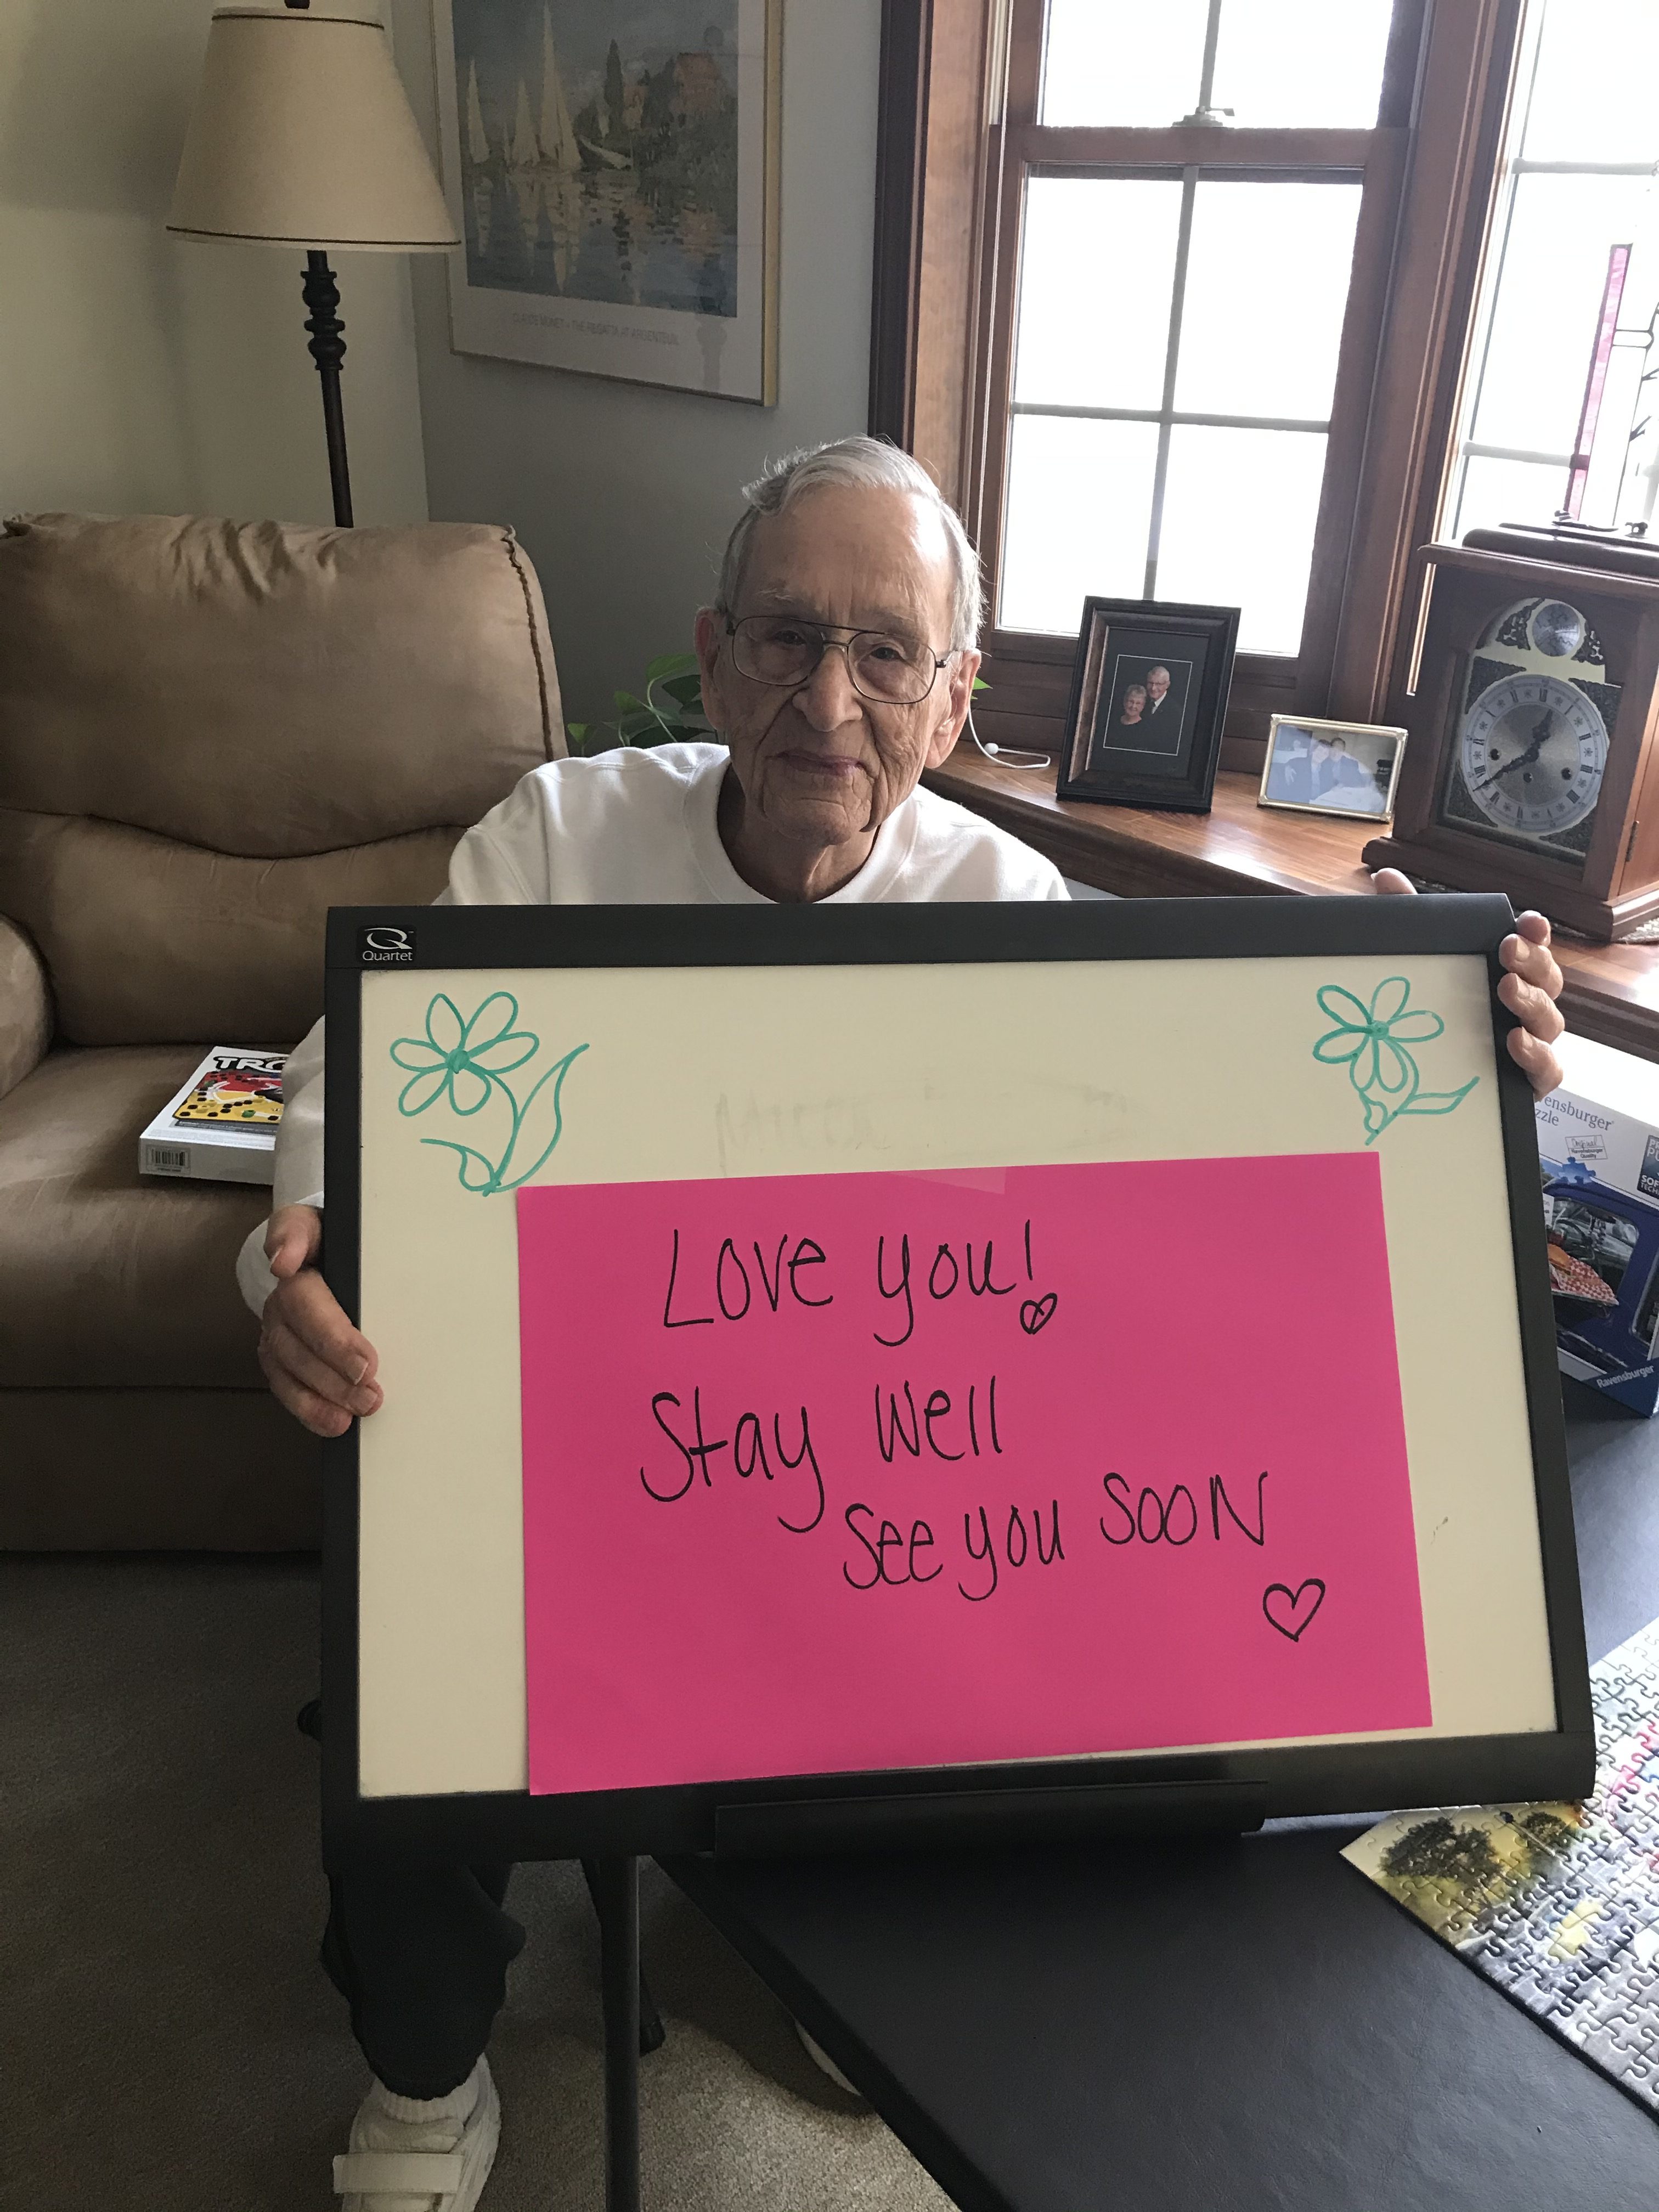 CLAUDE MONET • THE REGATTA AT ARGENTEUIL
Quartet
TRO
ensburger
zzle
Love you!
Stay Well
See you SOON
Ravensburger